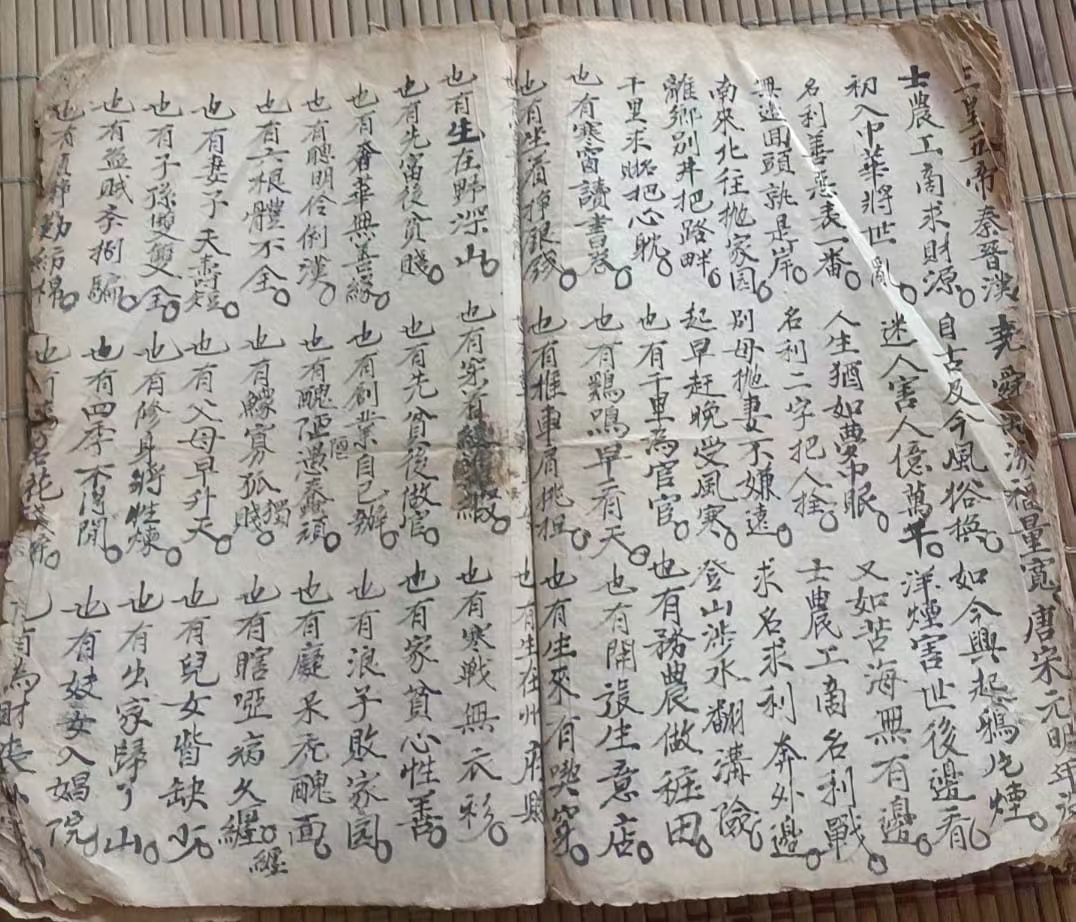 三皇五帝秦晉漢 堯舜禹湯福量寬 唐宋元明年
士農工商求財源。自古及今風俗換。如今興起鴉片煙。
初入中華將世亂。迷人害人億萬千。洋煙害世後邊看。
名利善惡表一番。人生猶如夢中眠。又如苦海無有邊。
無邊回頭就是岸。名利二字把人拴。士農工商名利戰。
南來北往拋家园。別母拋妻不嫌遠。求名求利奔外邊。
離鄉別井把路畔。起早赶晚受風寒。登山涉水翻溝險。
千里求賬把心耽。也有千里為官宦。也有務農做莊田。
也有寒窗讀書。也有鷄鳴早看天。也有開張生意店。
也有坐看掙銀錢。也有推車肩挑担。也有生來有喫穿。
也有生在州府縣
也有生在野深山。也有穿着綾羅緞。也有寒戰無衣衫。
也有先富後貧賤。也有先貧後做官。也有家貧心性善。
也有奢華無善緣。也有創業自己辦。也有浪子敗家园。
也有聰明伶俐漢。也有醜陋愚蠢頑。陋 也有痴呆禿醜面。
也有六根體不全。也有鰥寡孤獨賤。也有瞎啞病久纏。纏
也有妻子夭壽短。也有父母早升天。也有兒女皆缺少。
也有子孫雙雙全。也有修身將性煉。也有出家歸了山。
也有盜賊拿捌騙。也有四季不得閒。也有妓女入娼院。
也有勤紡棉。也有 也有為財